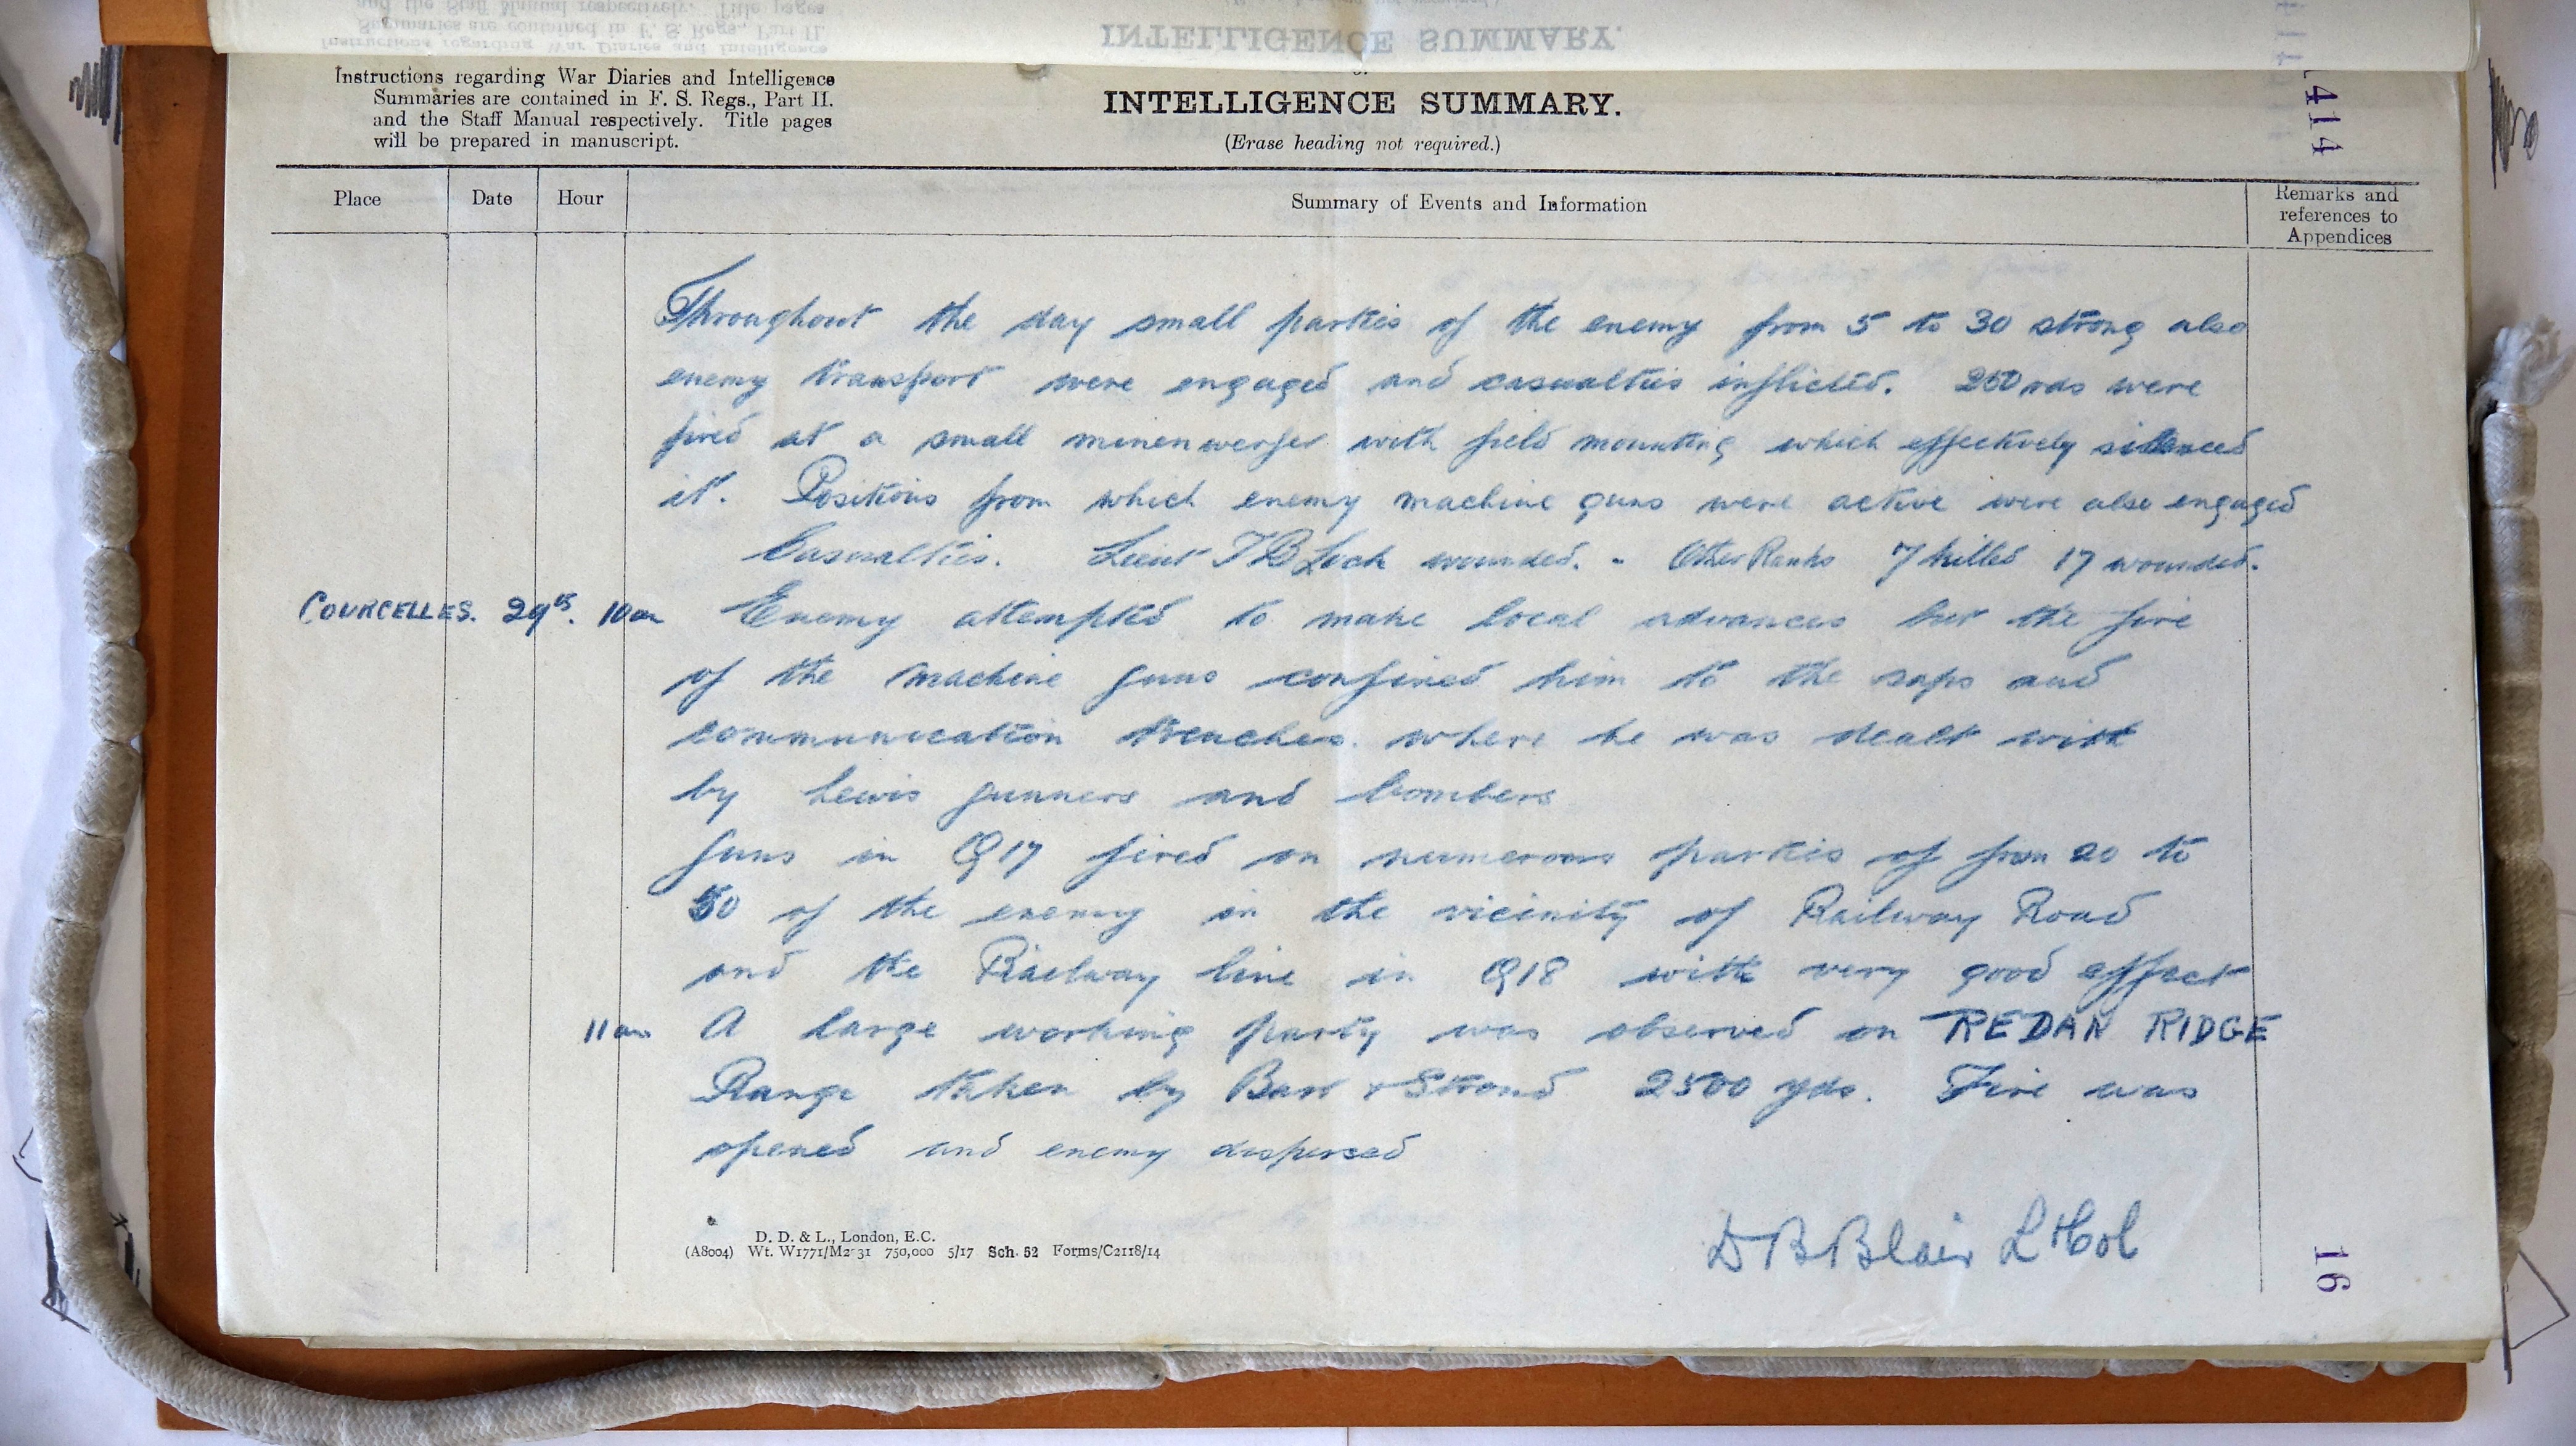 Instructions regarding War Diaries and Intelligence
Summaries are contained in F. S. Regs., Part II.
and the Staff Manual respectively. Title pages
will be prepared in manuscript.
INTELLIGENCE SUMMARY.
(Erase heading not required.)
414
Place Date Hour Summary of Events and Information Remarks and
references to
Appendices
Throughout the day small parties of the enemy from 5 to 30 strong also
enemy transport were engaged and casualties inflicted. 250 rds were
fired at a small minenwerfer with field mounting which effectively silenced
it. Positions from which enemy machine guns were active were also engaged
Casualties. Lieut T B Lock wounded. - Other Ranks 7 killed 17 wounded.
COURCELLES. 29th. 10am Enemy attempted to make local advances but the fire
of the machine guns confined him to the saps and
communication trenches. where he was dealt with
by Lewis gunners and bombers
Guns in Q17 fired on numerous parties of from 20 to
50 of the enemy in the vicinity of Railway Road
and the Railway line in Q18 with very good effect
11am A large working party was observed on REDAN RIDGE
Range taken by Barr & Stroud 2500 yds. Fire was
opened and enemy dispersed
D B Blair Lt Col
D. D. & L., London, E.C.
(A8004) Wt. W1771/M2 31 750,000 5/17 Sch. 52 Forms/C2118/14
16